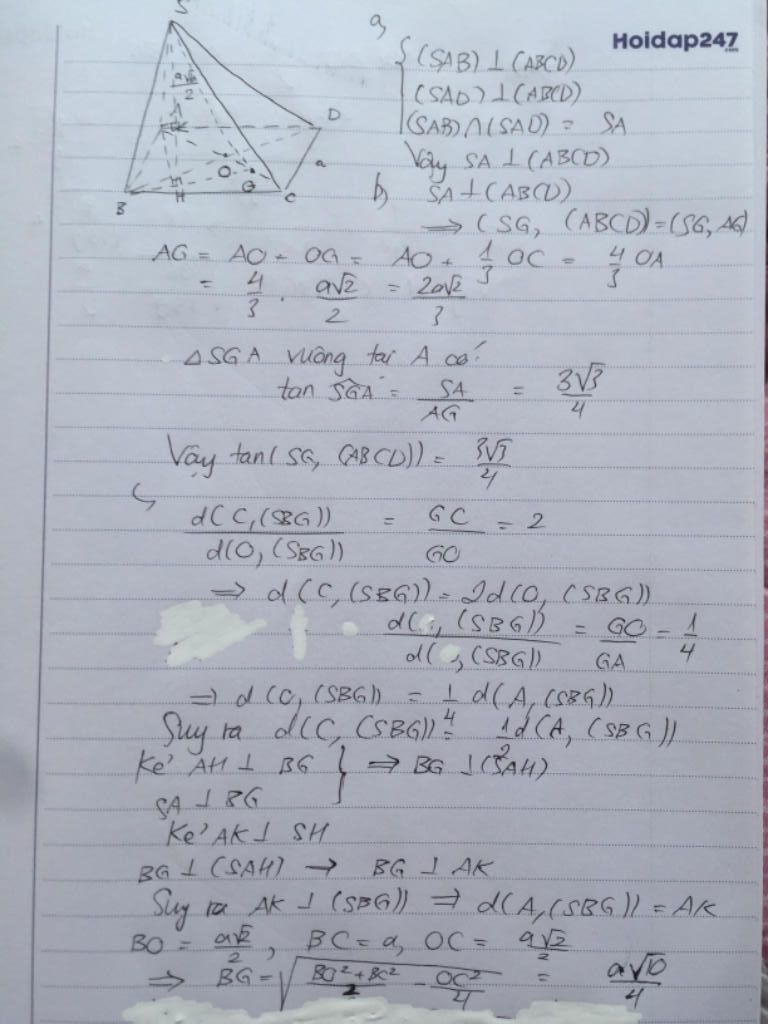 S
a√2/2
D
O
a
B
H
G
C
Hoidap247
.com
a,
(SAB) ⊥ (ABCD)
(SAD) ⊥ (ABCD)
(SAB) ∩ (SAD) = SA
Vậy SA ⊥ (ABCD)
b) SA ⊥ (ABCD)
⟹ (SG, (ABCD) = (SG, AG)
AG = AO + OG = AO + 1/3 OC = 4/3 OA
= 4/3 . a√2/2 = 2a√2/3
△SGA vuông tại A có:
tan SGA = SA/AG = 3√3/4
Vậy tan(SG, (ABCD)) = 3√3/4
d(C, (SBG))/d(O, (SBG)) = GC/GO = 2
⟹ d(C, (SBG)) = 2d(O, (SBG))
d( , (SBG))/d( , (SBG)) = GO/GA = 1/4
⟹ d(O, (SBG)) = 1/4 d(A, (SBG))
Suy ra d(C, (SBG)) = 1/2 d(A, (SBG))
Kẻ AH ⊥ BG } ⟹ BG ⊥ (SAH)
SA ⊥ BG
Kẻ AK ⊥ SH
BG ⊥ (SAH) → BG ⊥ AK
Suy ra AK ⊥ (SBG) ⟹ d(A, (SBG)) = AK
BO = a√2/2, BC = a, OC = a√2/2
⟹ BG = √((BO² + BC²)/2 - OC²/4) = a√10/4